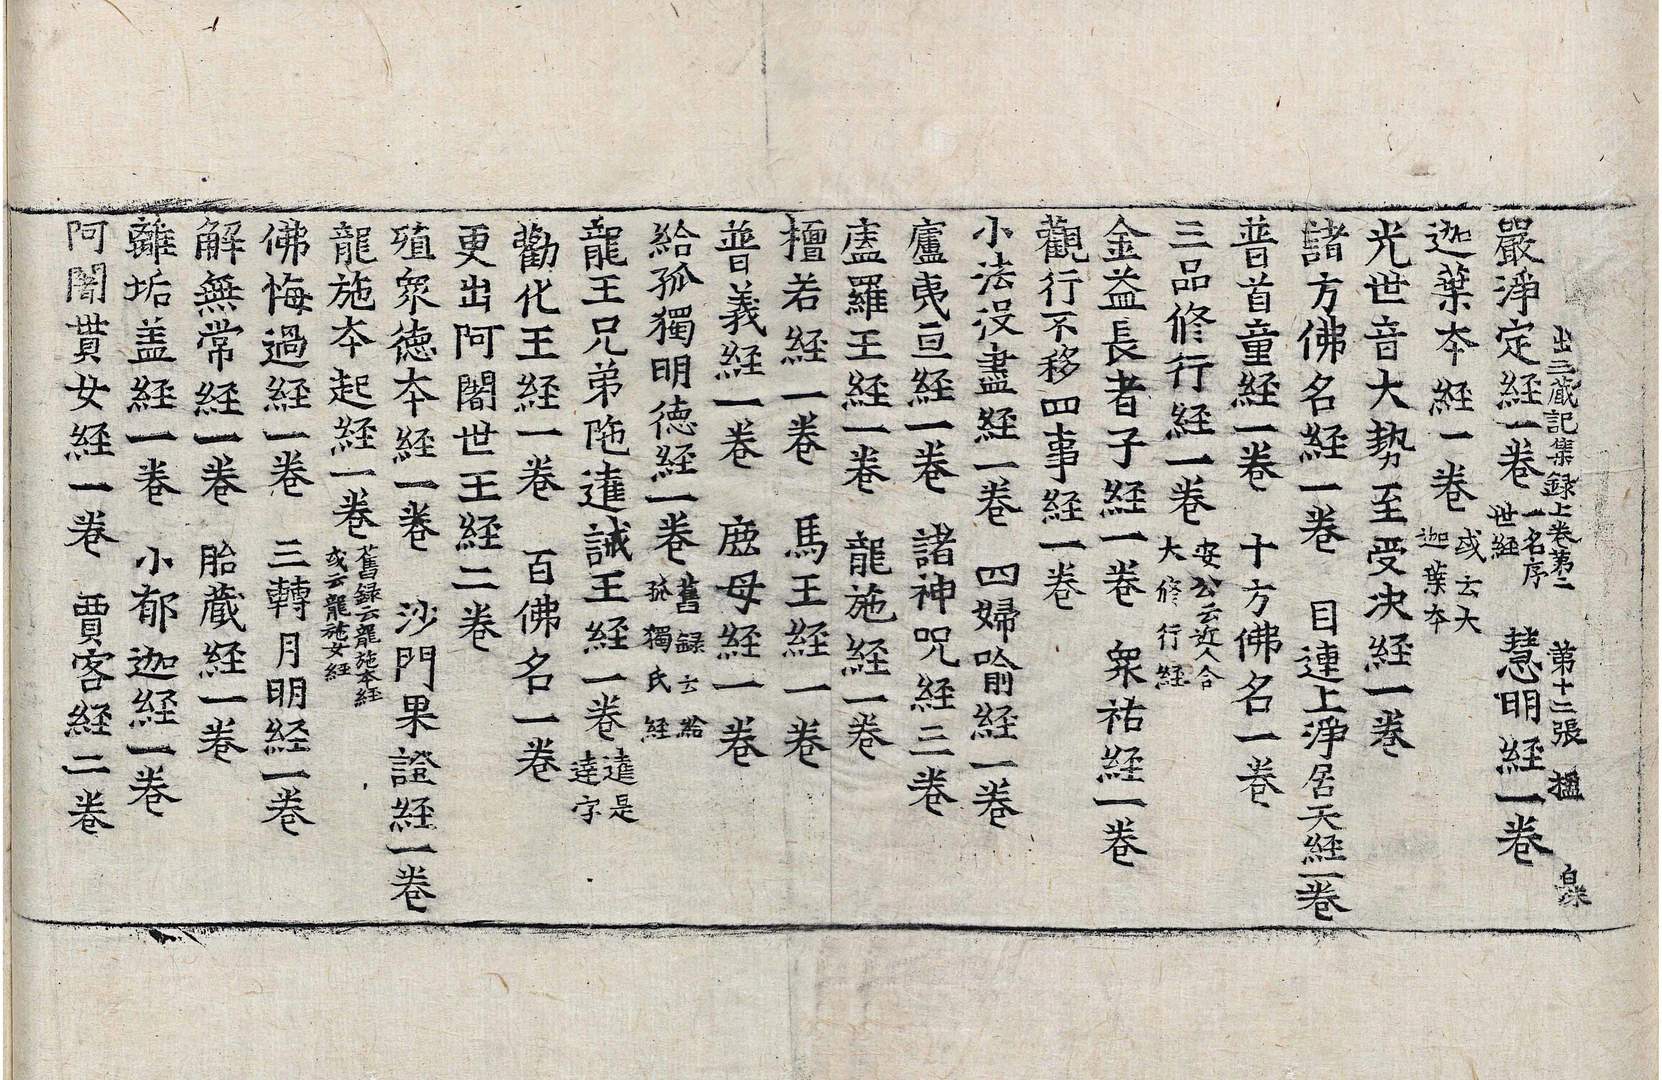 出三蔵記集録上卷第二　第十二張　楹　白𣳾
嚴淨定経一卷一名序世経　慧明経一卷
迦葉本経一卷或云大迦葉本
光世音大勢至受決経一卷
諸方佛名経一卷　目連上淨居天経一卷
普首童経一卷　十方佛名一卷
三品修行経一卷安公云近人合大修行経
金益長者子経一卷　衆祐経一卷
觀行不移四事経一卷
小法没盡経一卷　四婦喻経一卷
廬夷亘経一卷　諸神呪経三卷
盧羅王経一卷　龍施経一卷
擅若経一卷　馬王経一卷
普義経一卷　鹿母経一卷
給孤獨明德経一卷舊録云給孤獨氏経
龍王兄弟陁達誡王経一卷達是達字
勸化王経一卷　百佛名一卷
更出阿闍世王経二卷
殖衆德本経一卷　沙門果證経一卷
龍施本起経一卷舊録云龍施本経或云龍施女経
佛悔過経一卷　三轉月明経一卷
解無常経一卷　胎蔵経一卷
離垢盖経一卷　小郁迦経一卷
阿闍貰女経一卷　賈客経二卷